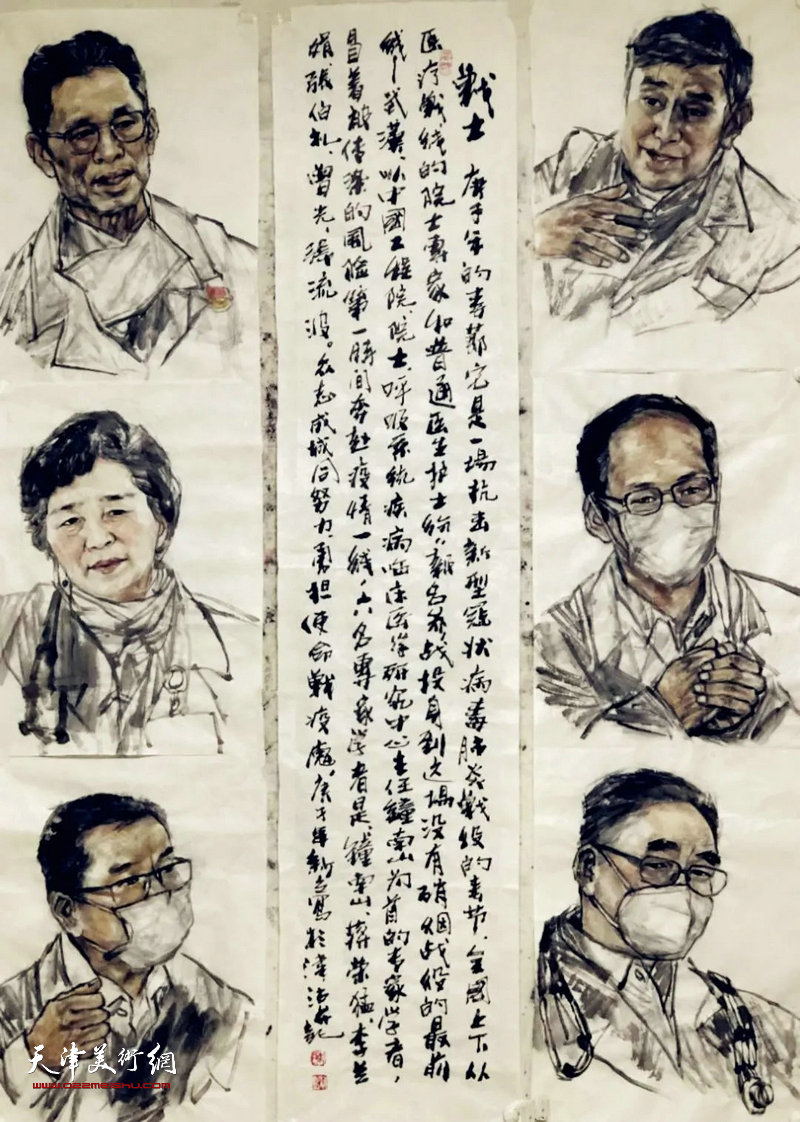 戰士 庚子年的春節它是一場抗击新型冠状病毒肺炎戰役的春节、全國上下从
医疗戰线的院士專家和普通医生护士纷纷報名参战投身到这場没有硝烟战役的最前
线——武漢、以中國工程院院士、呼吸系統疾病临床医学研究中心主任鐘南山为首的专家学者，
冒着被傳染的風险第一時间奔赴疫情一线，六名專家学者是、鐘南山、蒋荣猛、李兰
娟、張伯礼、曾光、張流波。众志成城同努力、勇担使命戰疫魔。庚子年新立寫於津沽并記
天津美術網
www.022meishu.com